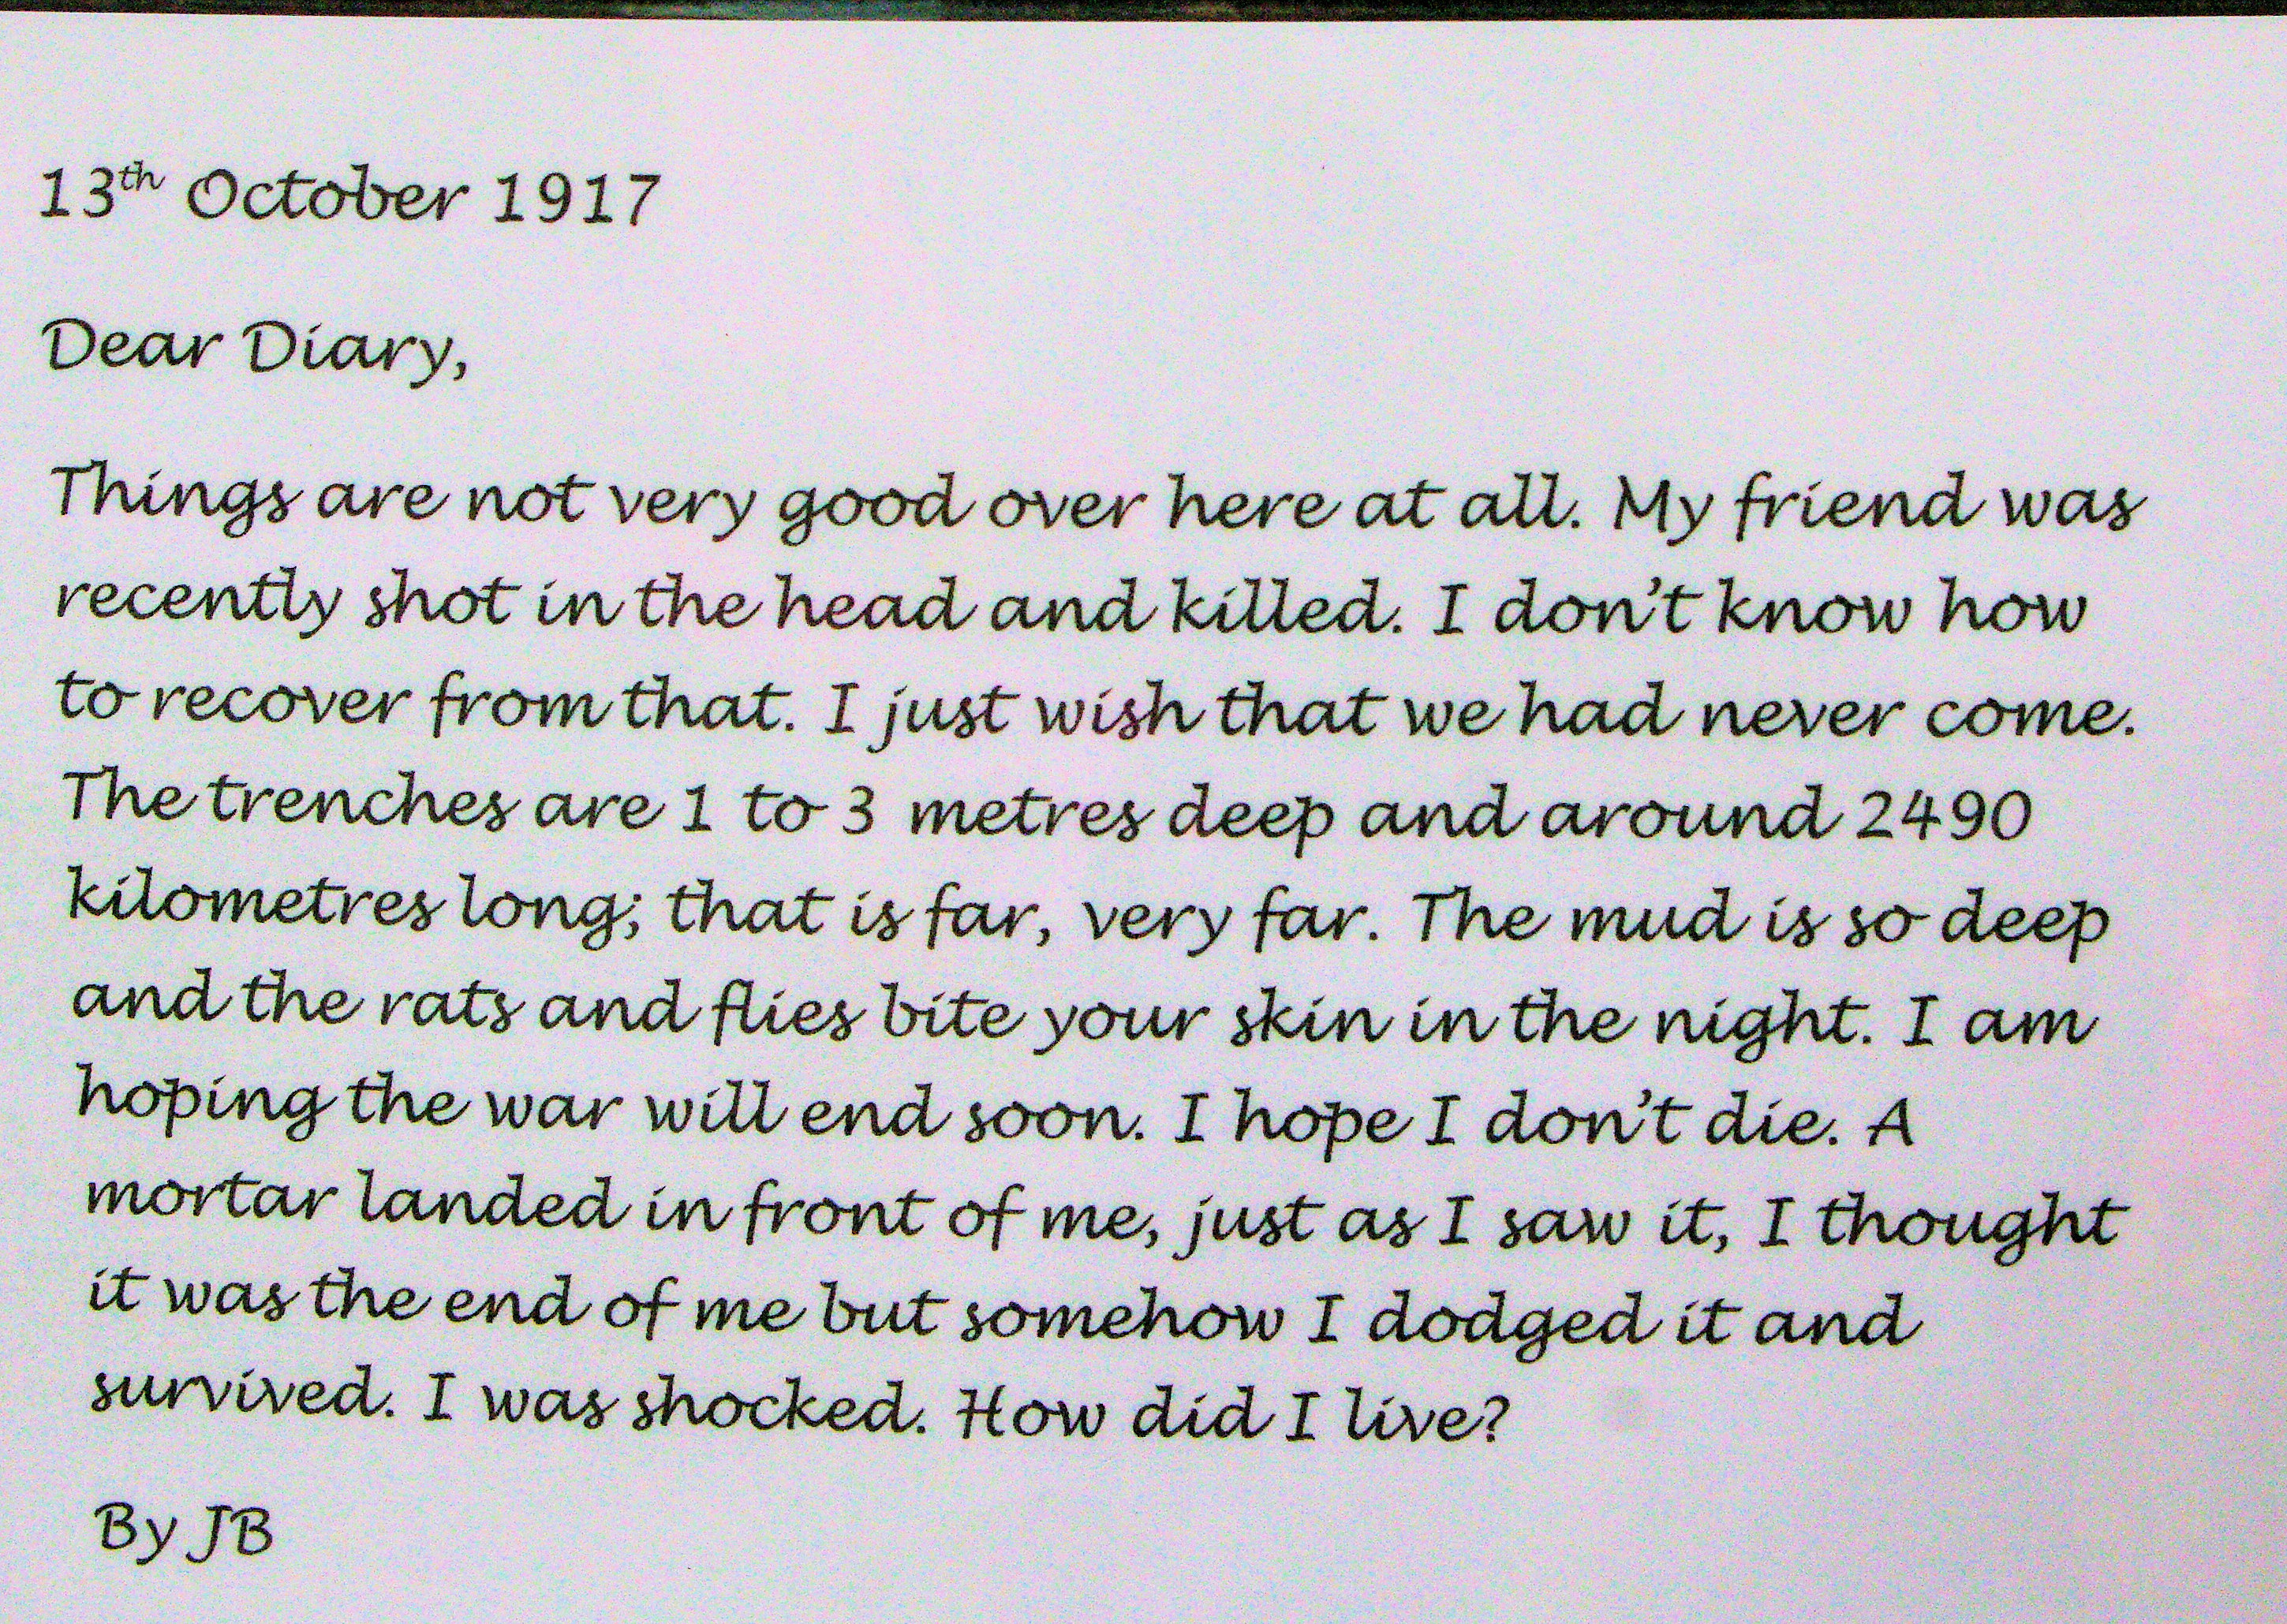 13th October 1917
Dear Diary,
Things are not very good over here at all. My friend was
recently shot in the head and killed. I don't know how
to recover from that. I just wish that we had never come.
The trenches are 1 to 3 metres deep and around 2490
kilometres long; that is far, very far. The mud is so deep
and the rats and flies bite your skin in the night. I am
hoping the war will end soon. I hope I don't die. A
mortar landed in front of me, just as I saw it, I thought
it was the end of me but somehow I dodged it and
survived. I was shocked. How did I live?
By JB